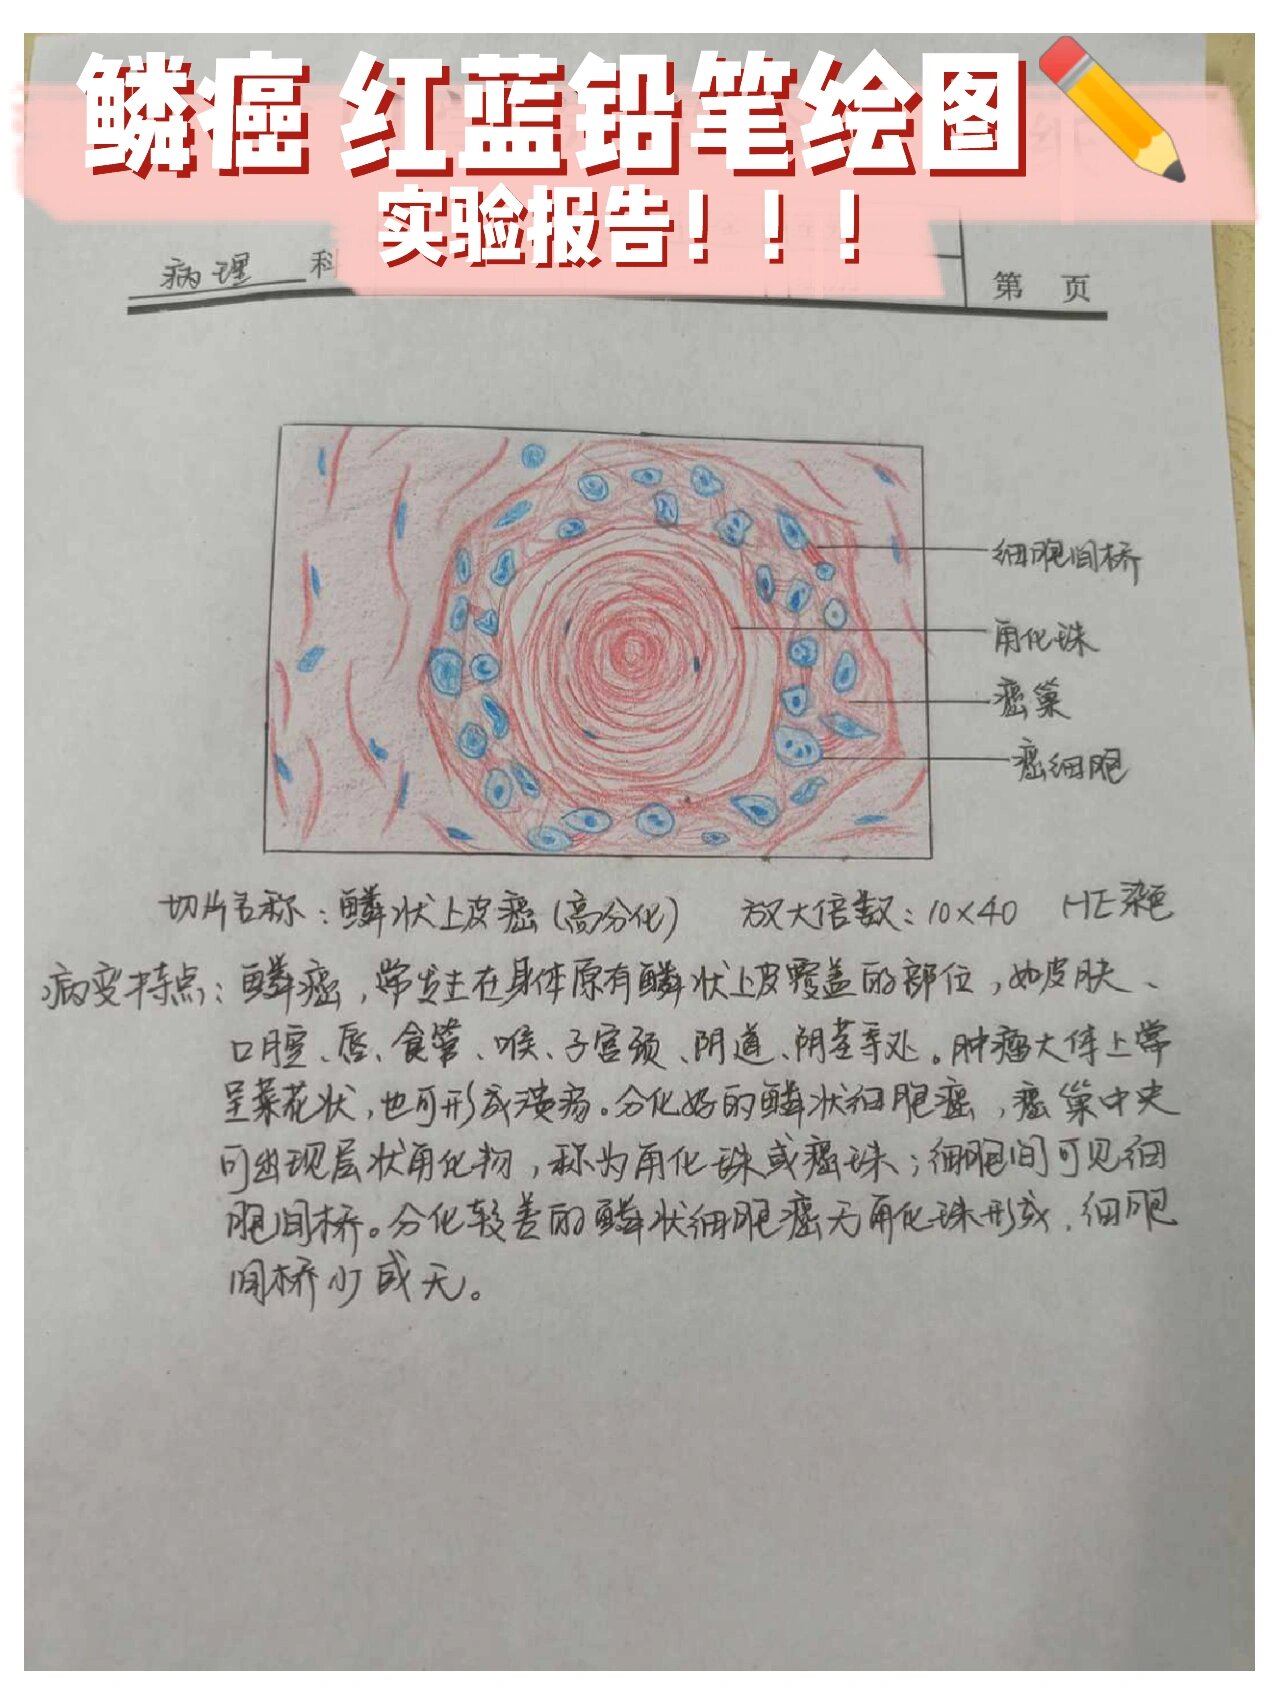 鳞癌 红蓝铅笔绘图
实验报告！！！
病理 科
第 页
细胞间桥
角化珠
癌巢
癌细胞
切片名称：鳞状上皮癌(高分化) 放大倍数：10×40 HE染色
病变特点：鳞癌，常发生在身体原有鳞状上皮覆盖的部位，如皮肤、
口腔、唇、食管、喉、子宫颈、阴道、阴茎等处。肿瘤大体上常
呈菜花状，也可形成溃疡。分化好的鳞状细胞癌，癌巢中央
可出现层状角化物，称为角化珠或癌珠；细胞间可见细
胞间桥。分化较差的鳞状细胞癌无角化珠形成，细胞
间桥少或无。